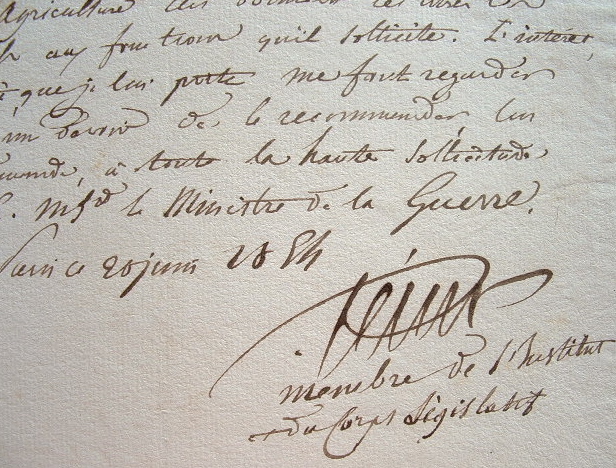 Agriculture des
aux fonctions qu'il sollicite. L'intérêt,
que je lui porte me font regarder
un devoir de le recommander, lui
à toute la haute sollicitude
le Ministre de la Guerre.
Paris ce 20 juin 1854
membre de l'Institut
et du Corps Législatif